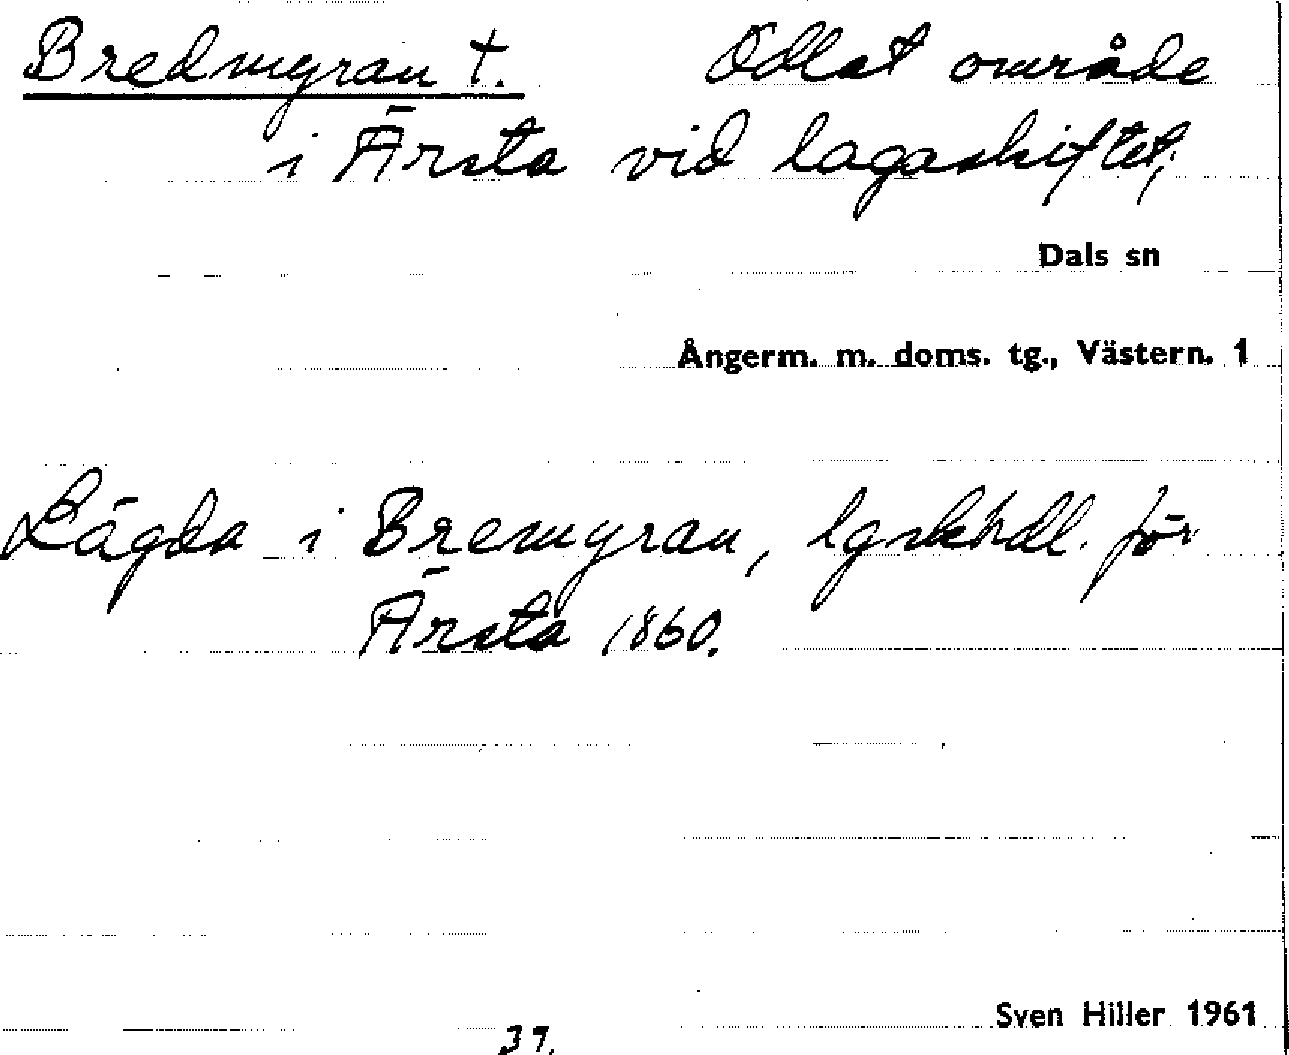 Bredmyran †. Odlat område
i Ärsta vid lagaskiftet.
Dals sn
Ångerm. m. doms. tg., Västern. 1
Lägda i Bremyran, lgskhdl. för
Ärsta 1860.
Sven Hiller 1961
37.